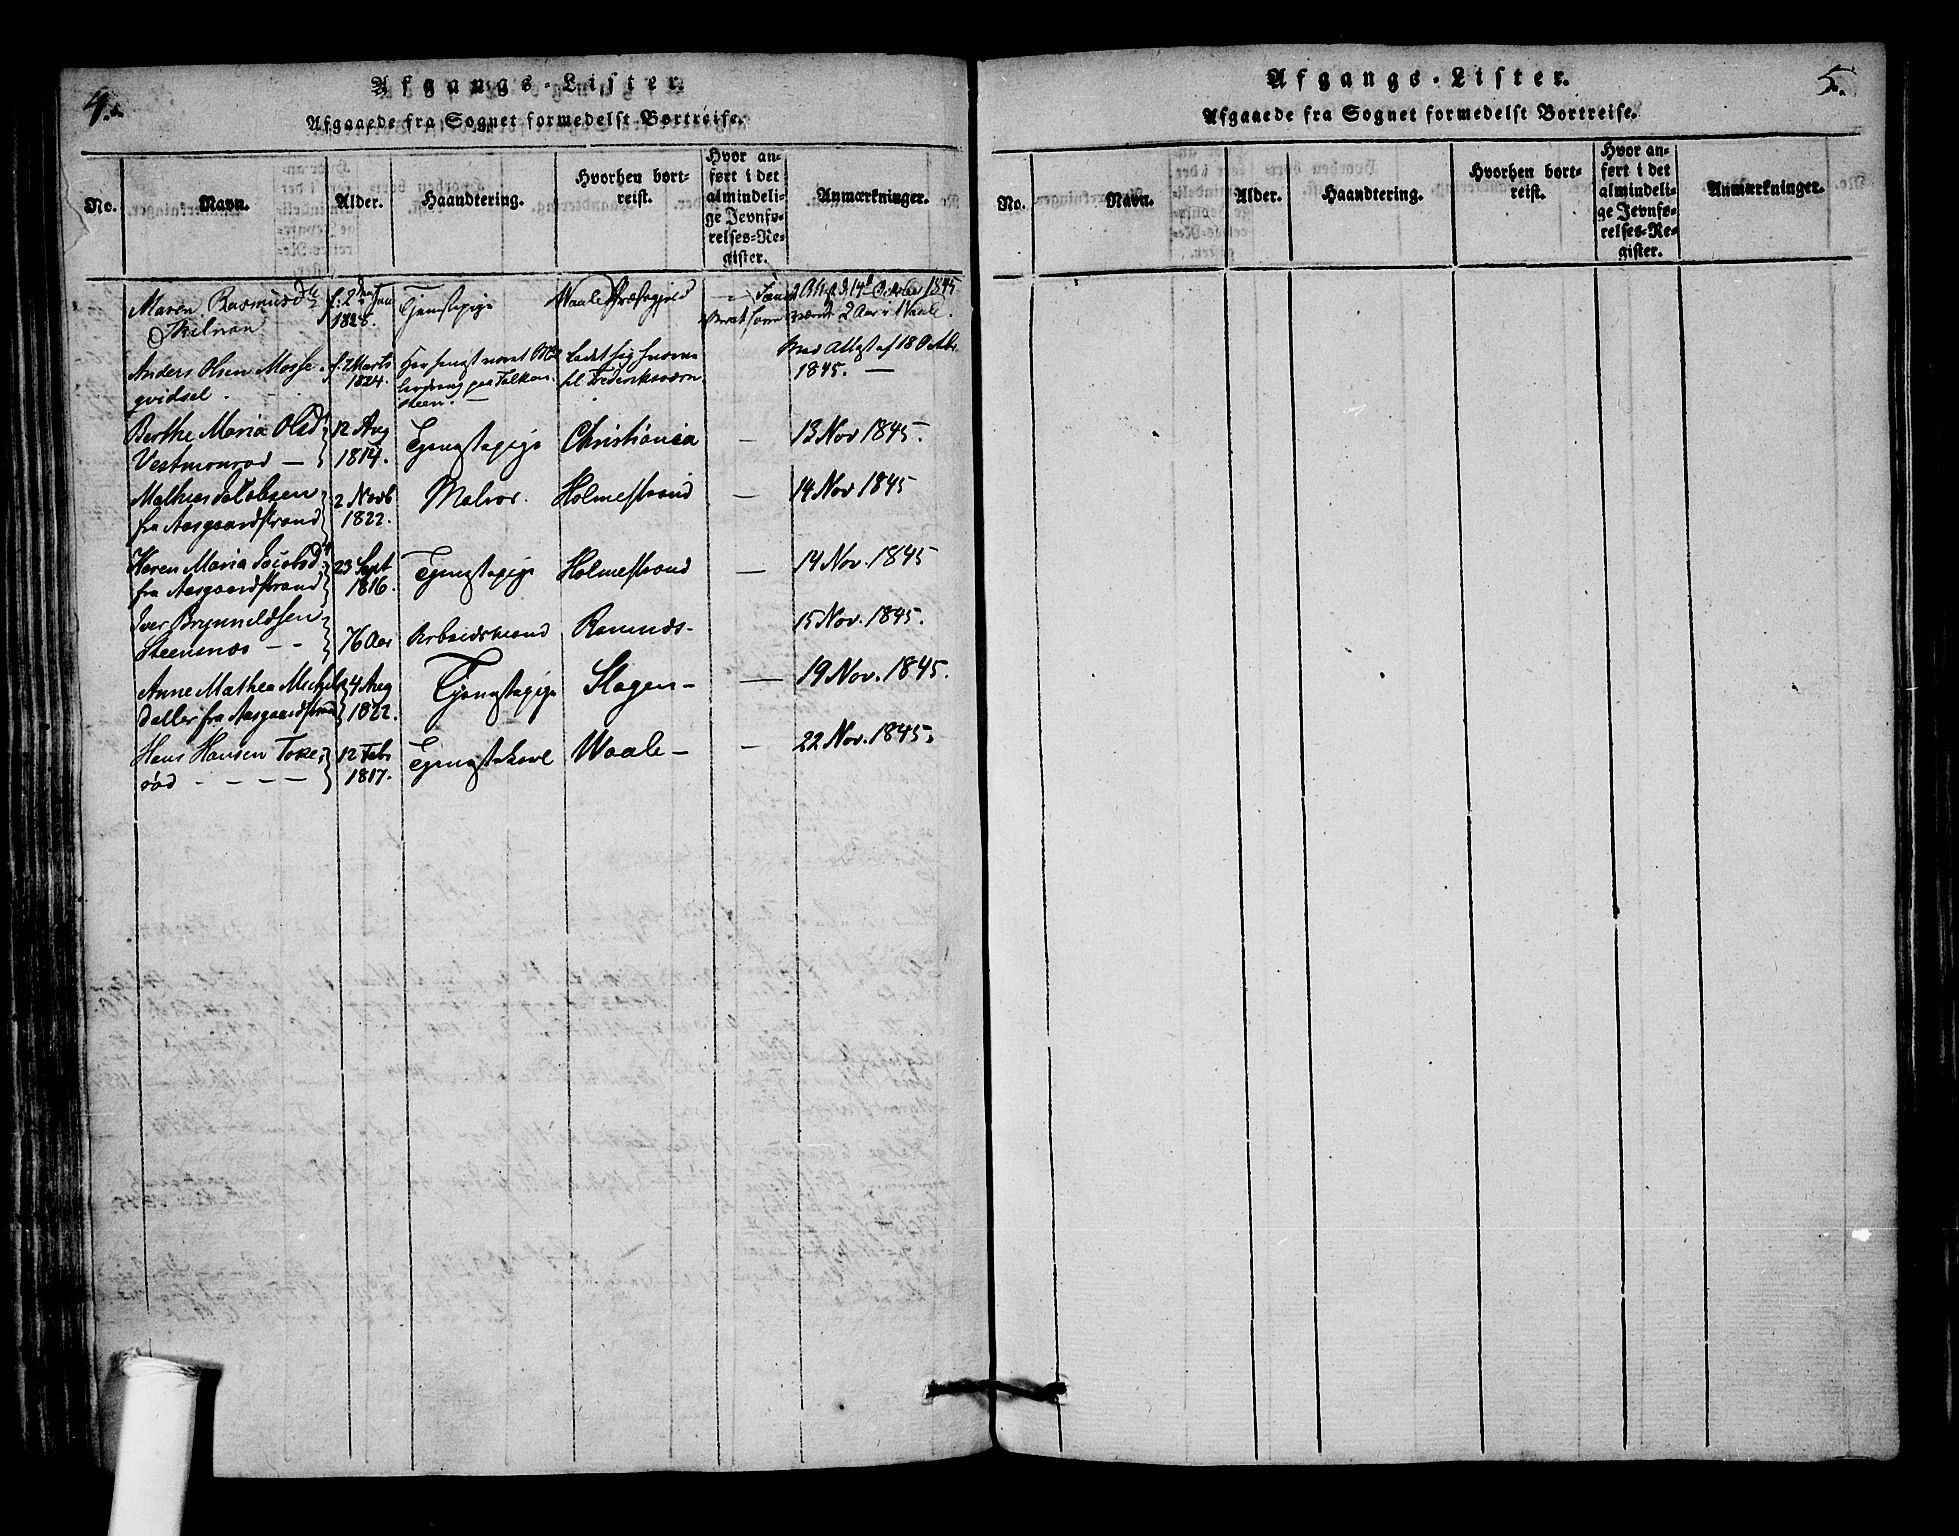 4.
Afgangs-Lister.
Afgaaede fra Sognet formedelst Bortreise.
No.
Navn.
Alder.
Haandtering.
Hvorhen bort-
reist.
Hvor an-
ført i det
almindeli-
ge Jevnfø-
relses-Re-
gister.
Anmærkninger.
Maren Rasmusd
1828.
Tjenstepige
Waale Præstegjeld
14 October 1845
2 Aar i Waale.
Anders Olsen
f: 2 Marts
1824.
til Frederiksværn
Med Attest af 18 Octbr
1845. —
Berthe Maria Olsd
Vestmonrød —
12 Aug
1814.
Tjenestepige
Christiania
—
13 Nov 1845.
Mathias Jacobsen
fra Aasgaardstrand
2 Novb
1822.
Holmestrand
—
14 Nov 1845
Karen Maria Jacobsd
fra Aasgaardstrand
23 Sept
1816.
Tjenestepige
Holmestrand
—
14 Nov. 1845
Iver Brynnildsen
Steensnæs - -
76 Aar
Arbeidsmand
Ramnæs -
15 Nov. 1845.
Anne Mathea Michels
datter fra Aasgaardstrand
4 Aug
1822.
Tjenestepige
Slagen -
—
19 Nov. 1845.
Hans Hansen Toke-
rød - - - -
12 Febr
1817.
Tjenestekarl
Waale -
—
22 Nov. 1845.
5.
Afgangs-Lister.
Afgaaede fra Sognet formedelst Bortreise.
No.
Navn.
Alder.
Haandtering.
Hvorhen bort-
reist.
Hvor an-
ført i det
almindeli-
ge Jevnfø-
relses-Re-
gister.
Anmærkninger.